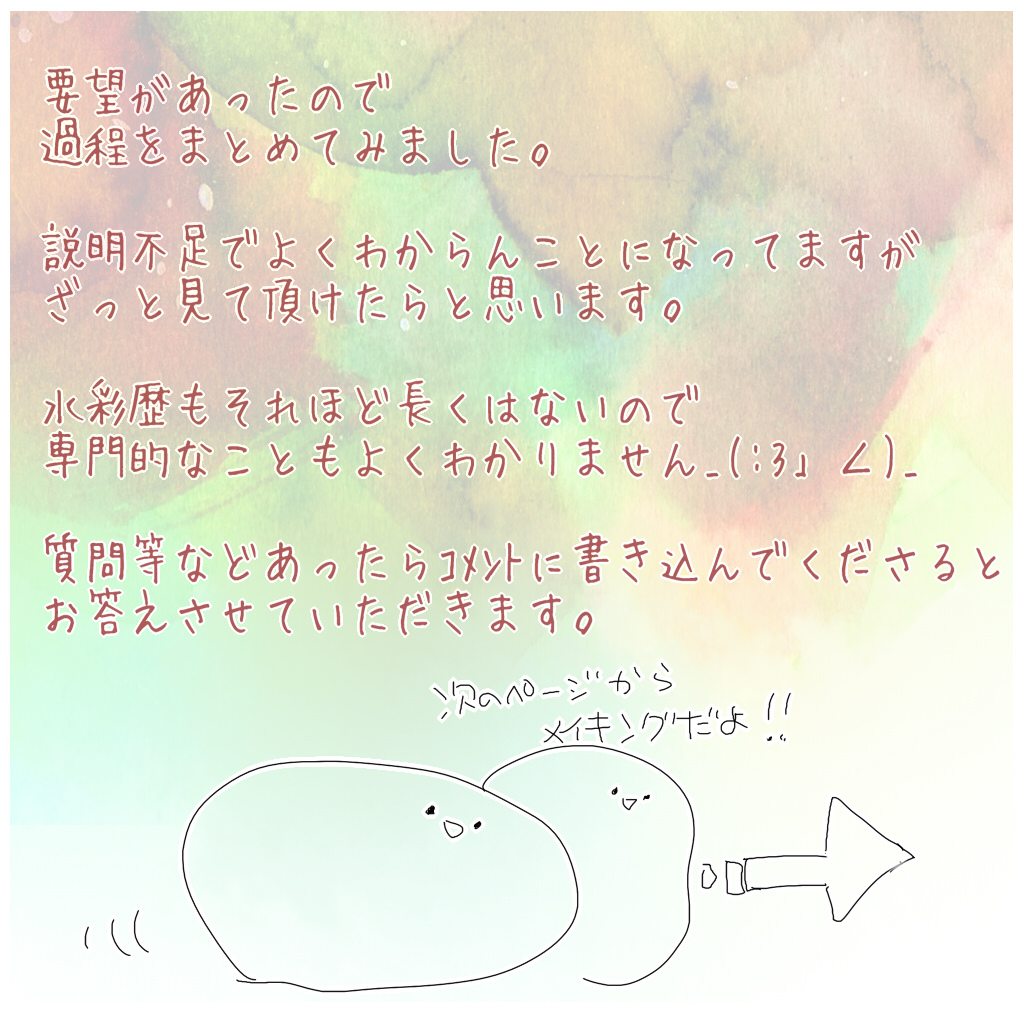 要望があったので
過程をまとめてみました。
説明不足でよくわからんことになってますが
ざっと見て頂けたらと思います。
水彩歴もそれほど長くはないので
専門的なこともよくわかりません_(:3」∠)_
質問等などあったらｺﾒﾝﾄに書き込んでくださると
お答えさせていただきます。
次のページから
メイキングだよ!!